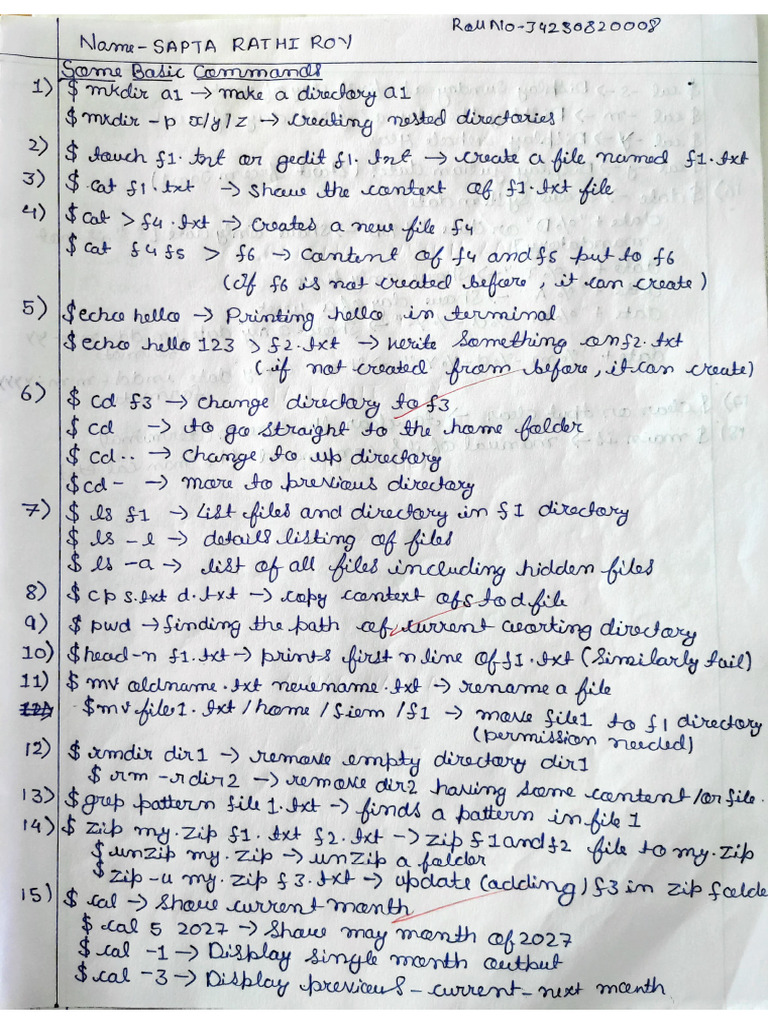 Roll No-34230820008
Name-SAPTA RATHI ROY
Some Basic Commands
1) $ mkdir a1 → make a directory a1
$ mkdir -p x/y/z → creating nested directories
2) $ touch f1.txt or gedit f1.txt → create a file named f1.txt
3) $ cat f1.txt → show the context of f1.txt file
4) $ cat > f4.txt → creates a new file f4
$ cat f4 f5 > f6 → content of f4 and f5 put to f6
(If f6 is not created before, it can create)
5) $echo hello → Printing hello in terminal
$ echo hello 123 > f2.txt → write something on f2.txt
(if not created from before, it can create)
6) $ cd f3 → change directory to f3
$ cd → to go straight to the home folder
$ cd.. → change to up directory
$cd- → move to previous directory
7) $ ls f1 → list files and directory in f1 directory
$ ls -l → details listing of files
$ ls -a → list of all files including hidden files
8) $ cp s.txt d.txt → copy context of s to d file
9) $ pwd → finding the path of current working directory
10) $head-n f1.txt → prints first n line of f1.txt (Similarly tail)
11) $ mv oldname.txt newname.txt → rename a file
$mv file1.txt /home/siem/f1 → move file1 to f1 directory
(permission needed)
12) $ rmdir dir1 → remove empty directory dir1
$ rm -r dir2 → remove dir2 having some content/or file.
13) $grep pattern file1.txt → finds a pattern in file 1
14) $ zip my.zip f1.txt f2.txt → zip f1 and f2 file to my.zip
$unzip my.zip → unzip a folder
$ zip -u my.zip f3.txt → update (adding) f3 in zip folde
15) $ cal → Show current month
$ cal 5 2027 → Show may month of 2027
$ cal -1 → Display single month output
$ cal -3 → Display previous-current-next month